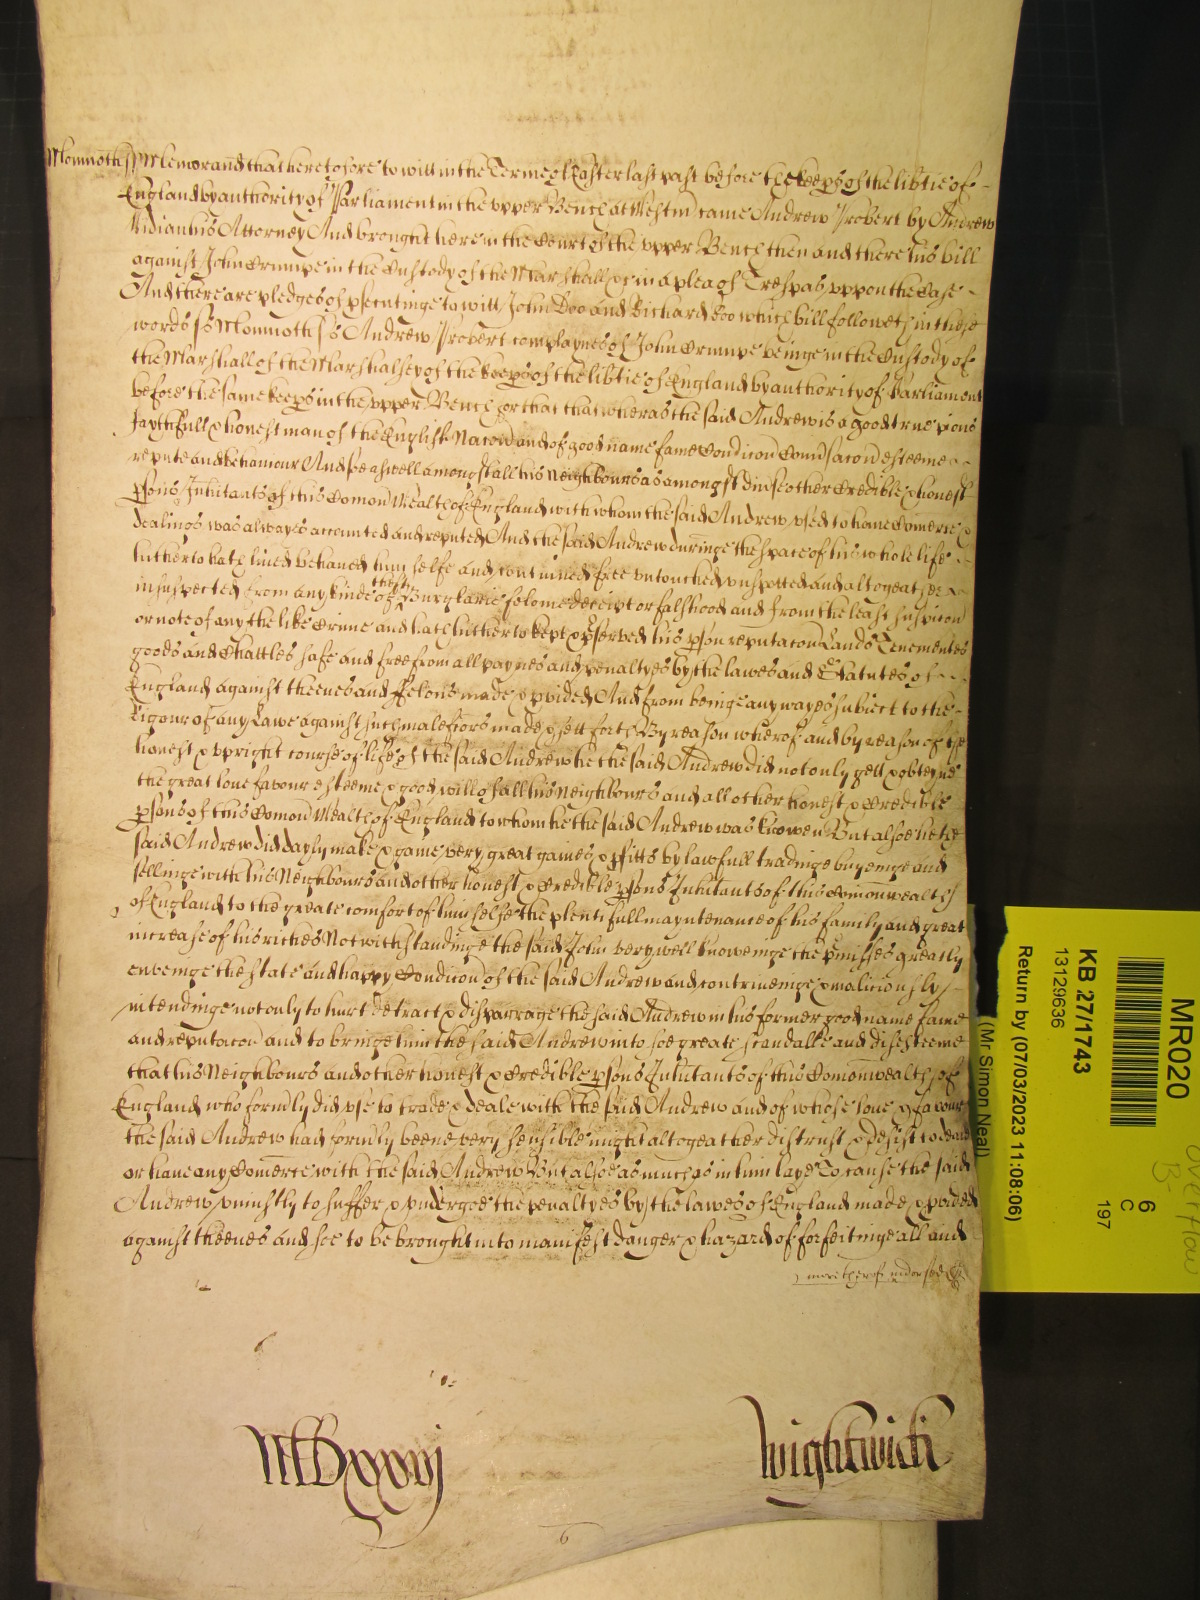 Monmoth ss Memorand that heretofore to witt in the Terme of Easter last past before the keeps of the libtie of
England by authority of Parliament in the upper Bench at Westm came Andrew Probert by Andrew
his Attorney And brought here in the Court of the upper Bench then and there his bill
against John Crumpe in the Custody of the Marshall &c in a plea of Trespas uppon the Case
And there are pledges of psecutinge to witt John Doo and Richard Roo which bill followeth in these
words ss Monmoth ss Andrew Probert complaynes of John Crumpe beinge in the Custody of
the Marshall of the Marshalsey of the keeps of the libtie of England by authority of Parliament
before the same keeps in the upper Bench for that that wheras the said Andrew is a good true pious
faythfull & honest man of the English Nacon and of good name fame Condicon Convsacon esteeme
repute and behaviour And soe aswell amongst all his Neighbours as amongst divse other Credible & honest
psons Inhitants of this Comon Wealth of England with whom the said Andrew used to have Comerce &
dealings was alwayes accounted and reputed And the said Andrew duringe the space of his whole life
hitherto hath lived behaved him selfe and continued free untouched unspotted and altogeather
unsuspected from any kinde of theft Burglarie felonie deceipt or falshood and from the least suspicon
or note of any the like Crime and hath hitherto kept & pserved his pson reputacon Lands Tenements
goods and Chattles safe and free from all paynes and penaltyes by the lawes and Statutes of
England against theeves and Felons made & pvided And from beinge any wayes subiect to the
Rigour of any Lawe against such malefcors made & sett forth By reason wherof and by reason of the
honest & upright course of life of the said Andrew he the said Andrew did not only gett & obteyne
the great love favour esteeme & good will of all his Neighbours and all other honest & Credible
psons of this Comon Wealth of England to whom he the said Andrew was knowen But alsoe he the
said Andrew did dayly make & gaine very great gaines & pfitts by lawfull tradinge buyenge and
sellinge with his Neighbours and other honest & Credible psons Inhitants of this Comonwealth
of England to the greate comfort of him selfe the plentifull mayntenance of his family and great
increase of his riches Notwithstandinge the said John very well knoweinge the pmisses greatly
envienge the state and happy Condicon of the said Andrew and contriveinge & maliciously
intendinge not only to hurt detract & disparrage the said Andrew in his former good name fame
and reputacon and to bringe him the said Andrew into soe greate scandall and disesteeme
that his Neighbours and other honest & Credible psons Inhitants of this Comonwealth of
England who formly did use to trade & deale with the said Andrew and of whose love & favour
the said Andrew had formly beene very sensible might altogeather distrust & desist to deale
or have any Comerce with the said Andrew But alsoe as much as in him laye To cause the said
Andrew uniustly to suffer & undergoe the penaltyes by the lawes of England made & pvided
against theeves and soe to be brought into manifest danger & hazard of forfeitinge all and
more therof indorsed
MCDxxxvj
Wightwick
6
MR020
KB 27/1743
13129636
Return by (07/03/2023 11:08:06)
(Mr Simon Neal)
6
C
197
Overflow
B-